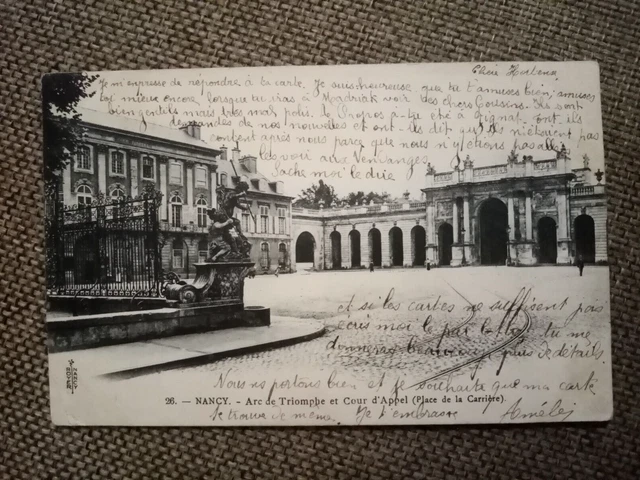 Chère Hortense
Je m'empresse de répondre à ta carte. Je suis heureuse que tu t'amuses bien, amuses
toi mieux encore lorsque tu iras à voir des chers Cousins. Ils sont
bien gentils mais pas polis. à propos a-tu été à Gignat. Ont-ils
demandés de nos nouvelles et ont-ils dit qu'ils n'étaient pas
content après nous parce que nous n'y étions pas allé
les voir aux Vendanges
Sache moi le dire
et si les cartes ne suffisent pas
écris moi le par lettre, tu me
donneras beaucoup plus de détails.
Nous nous portons bien et je souhaite que ma carte
26. — NANCY. - Arc de Triomphe et Cour d'Appel (Place de la Carrière).
te trouve de même. Je t'embrasse Amélie